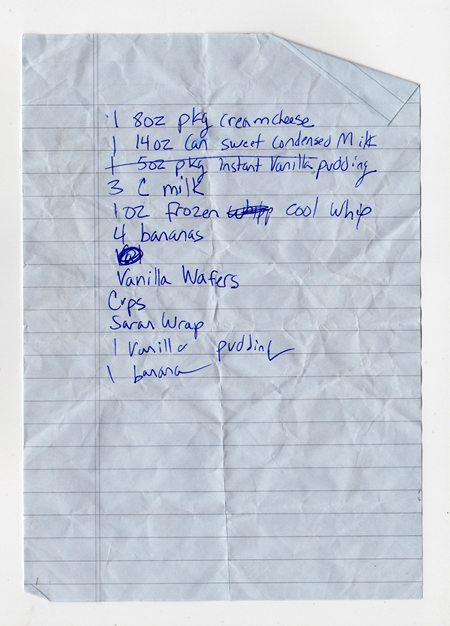 1 8oz pkg creamcheese
1 14oz can sweet condensed Milk
1 5oz pkg instant Vanilla pudding
3 C milk
1 oz frozen cool whip
4 bananas
Vanilla Wafers
Cups
Saran Wrap
1 vanilla pudding
1 banana